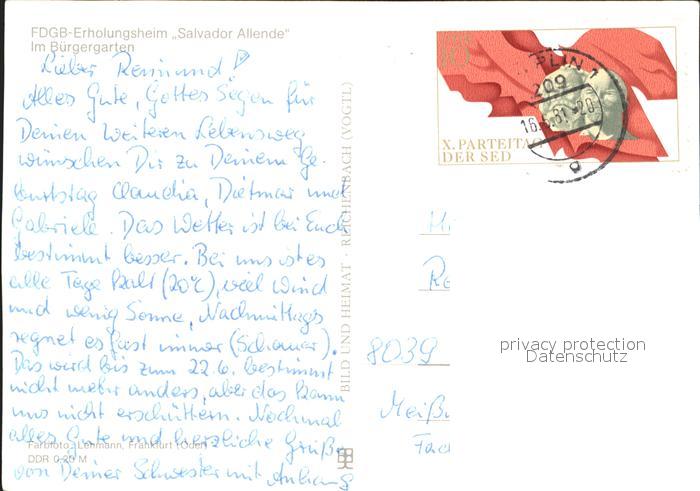 FDGB-Erholungsheim „Salvador Allende“
Im Bürgergarten
Lieber Reimund!
Alles Gute, Gottes Segen für
Deinen weiteren Lebensweg
wünschen Dir zu Deinem Ge-
burtstag Claudia, Dietmar und
Gabriele. Das Wetter ist bei Euch
bestimmt besser. Bei uns ist es
alle Tage kalt (20°C), viel Wind
und wenig Sonne, Nachmittags
regnet es fast immer (Schauer).
Das wird bis zum 22.6. bestimmt
nicht mehr anders, aber das kann
uns nicht erschüttern. Nochmal
alles Gute und herzliche Grüße
von Deiner Schwester mit Anhang
Farbfoto: Lehmann, Frankfurt (Oder)
DDR 0,20 M
BILD UND HEIMAT · REICHENBACH (VOGTL)
10
X. PARTEITAG
DER SED
209
8039
privacy protection
Datenschutz